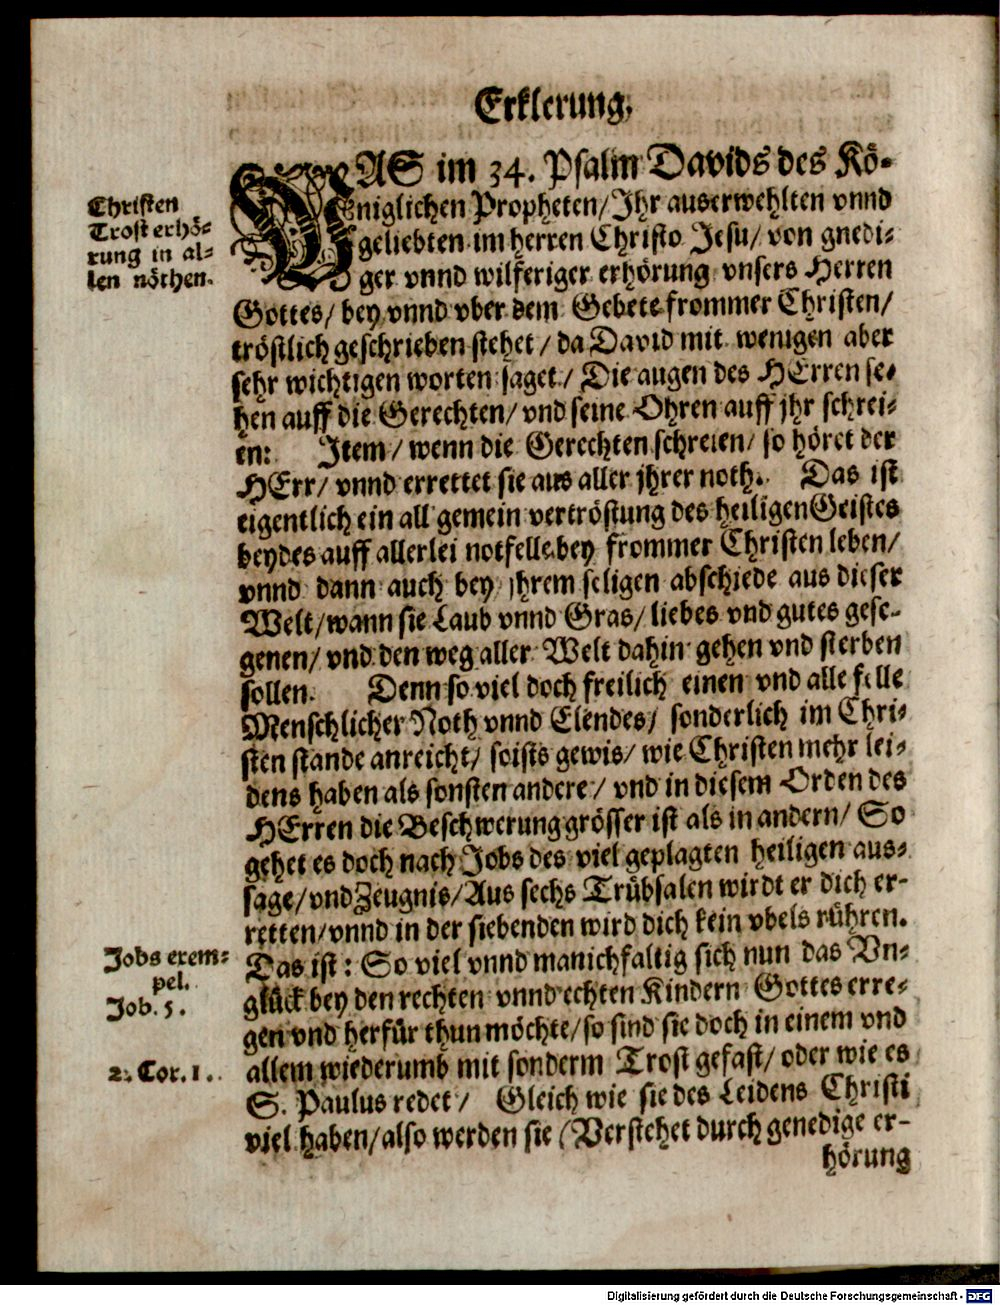 Erklerung,
WAS im 34. Psalm Davids des Kö-
niglichen Propheten/Jhr auserwehlten vnnd
geliebten im herren Christo Jesu/ von gnedi-
ger vnnd wilferiger erhörung vnsers Herren
Gottes/ bey vnnd vber dem Gebete frommer Christen/
tröstlich geschrieben stehet/ da David mit wenigen aber
sehr wichtigen worten saget/ Die augen des HErren se-
hen auff die Gerechten/ vnd seine Ohren auff jhr schrei-
en: Jtem/ wenn die Gerechten schreien/ so höret der
HErr/ vnnd errettet sie aus aller jhrer noth. Das ist
eigentlich ein all gemein vertröstung des heiligen Geistes
beydes auff allerlei notfelle bey frommer Christen leben/
vnnd dann auch bey jhrem seligen abschiede aus dieser
Welt/wann sie Laub vnnd Gras/ liebes vnd gutes gese-
genen/ vnd den weg aller Welt dahin gehen vnd sterben
sollen. Denn so viel doch freilich einen vnd alle felle
Menschlicher Noth vnnd Elendes/ sonderlich im Chri-
sten stande anreicht/ soists gewis/ wie Christen mehr lei-
dens haben als sonsten andere/ vnd in diesem Orden des
HErren die Beschwerung grösser ist als in andern/ So
gehet es doch nach Jobs des viel geplagten heiligen aus-
sage/vnd Zeugnis/Aus sechs Trübsalen wirdt er dich er-
retten/vnnd in der siebenden wird dich kein vbels rühren.
Das ist: So viel vnnd manichfaltig sich nun das Vn-
glück bey den rechten vnnd echten Kindern Gottes erre-
gen vnd herfür thun möchte/so sind sie doch in einem vnd
allem wiederumb mit sonderm Trost gefast/ oder wie es
S. Paulus redet/ Gleich wie sie des Leidens Christi
viel haben/also werden sie (Verstehet durch genedige er-
hörung
Christen
Trost erhö-
rung in al-
len nöthen.
Jobs exem-
pel.
Job. 5.
2. Cor. 1.
Digitalisierung gefördert durch die Deutsche Forschungsgemeinschaft - DFG